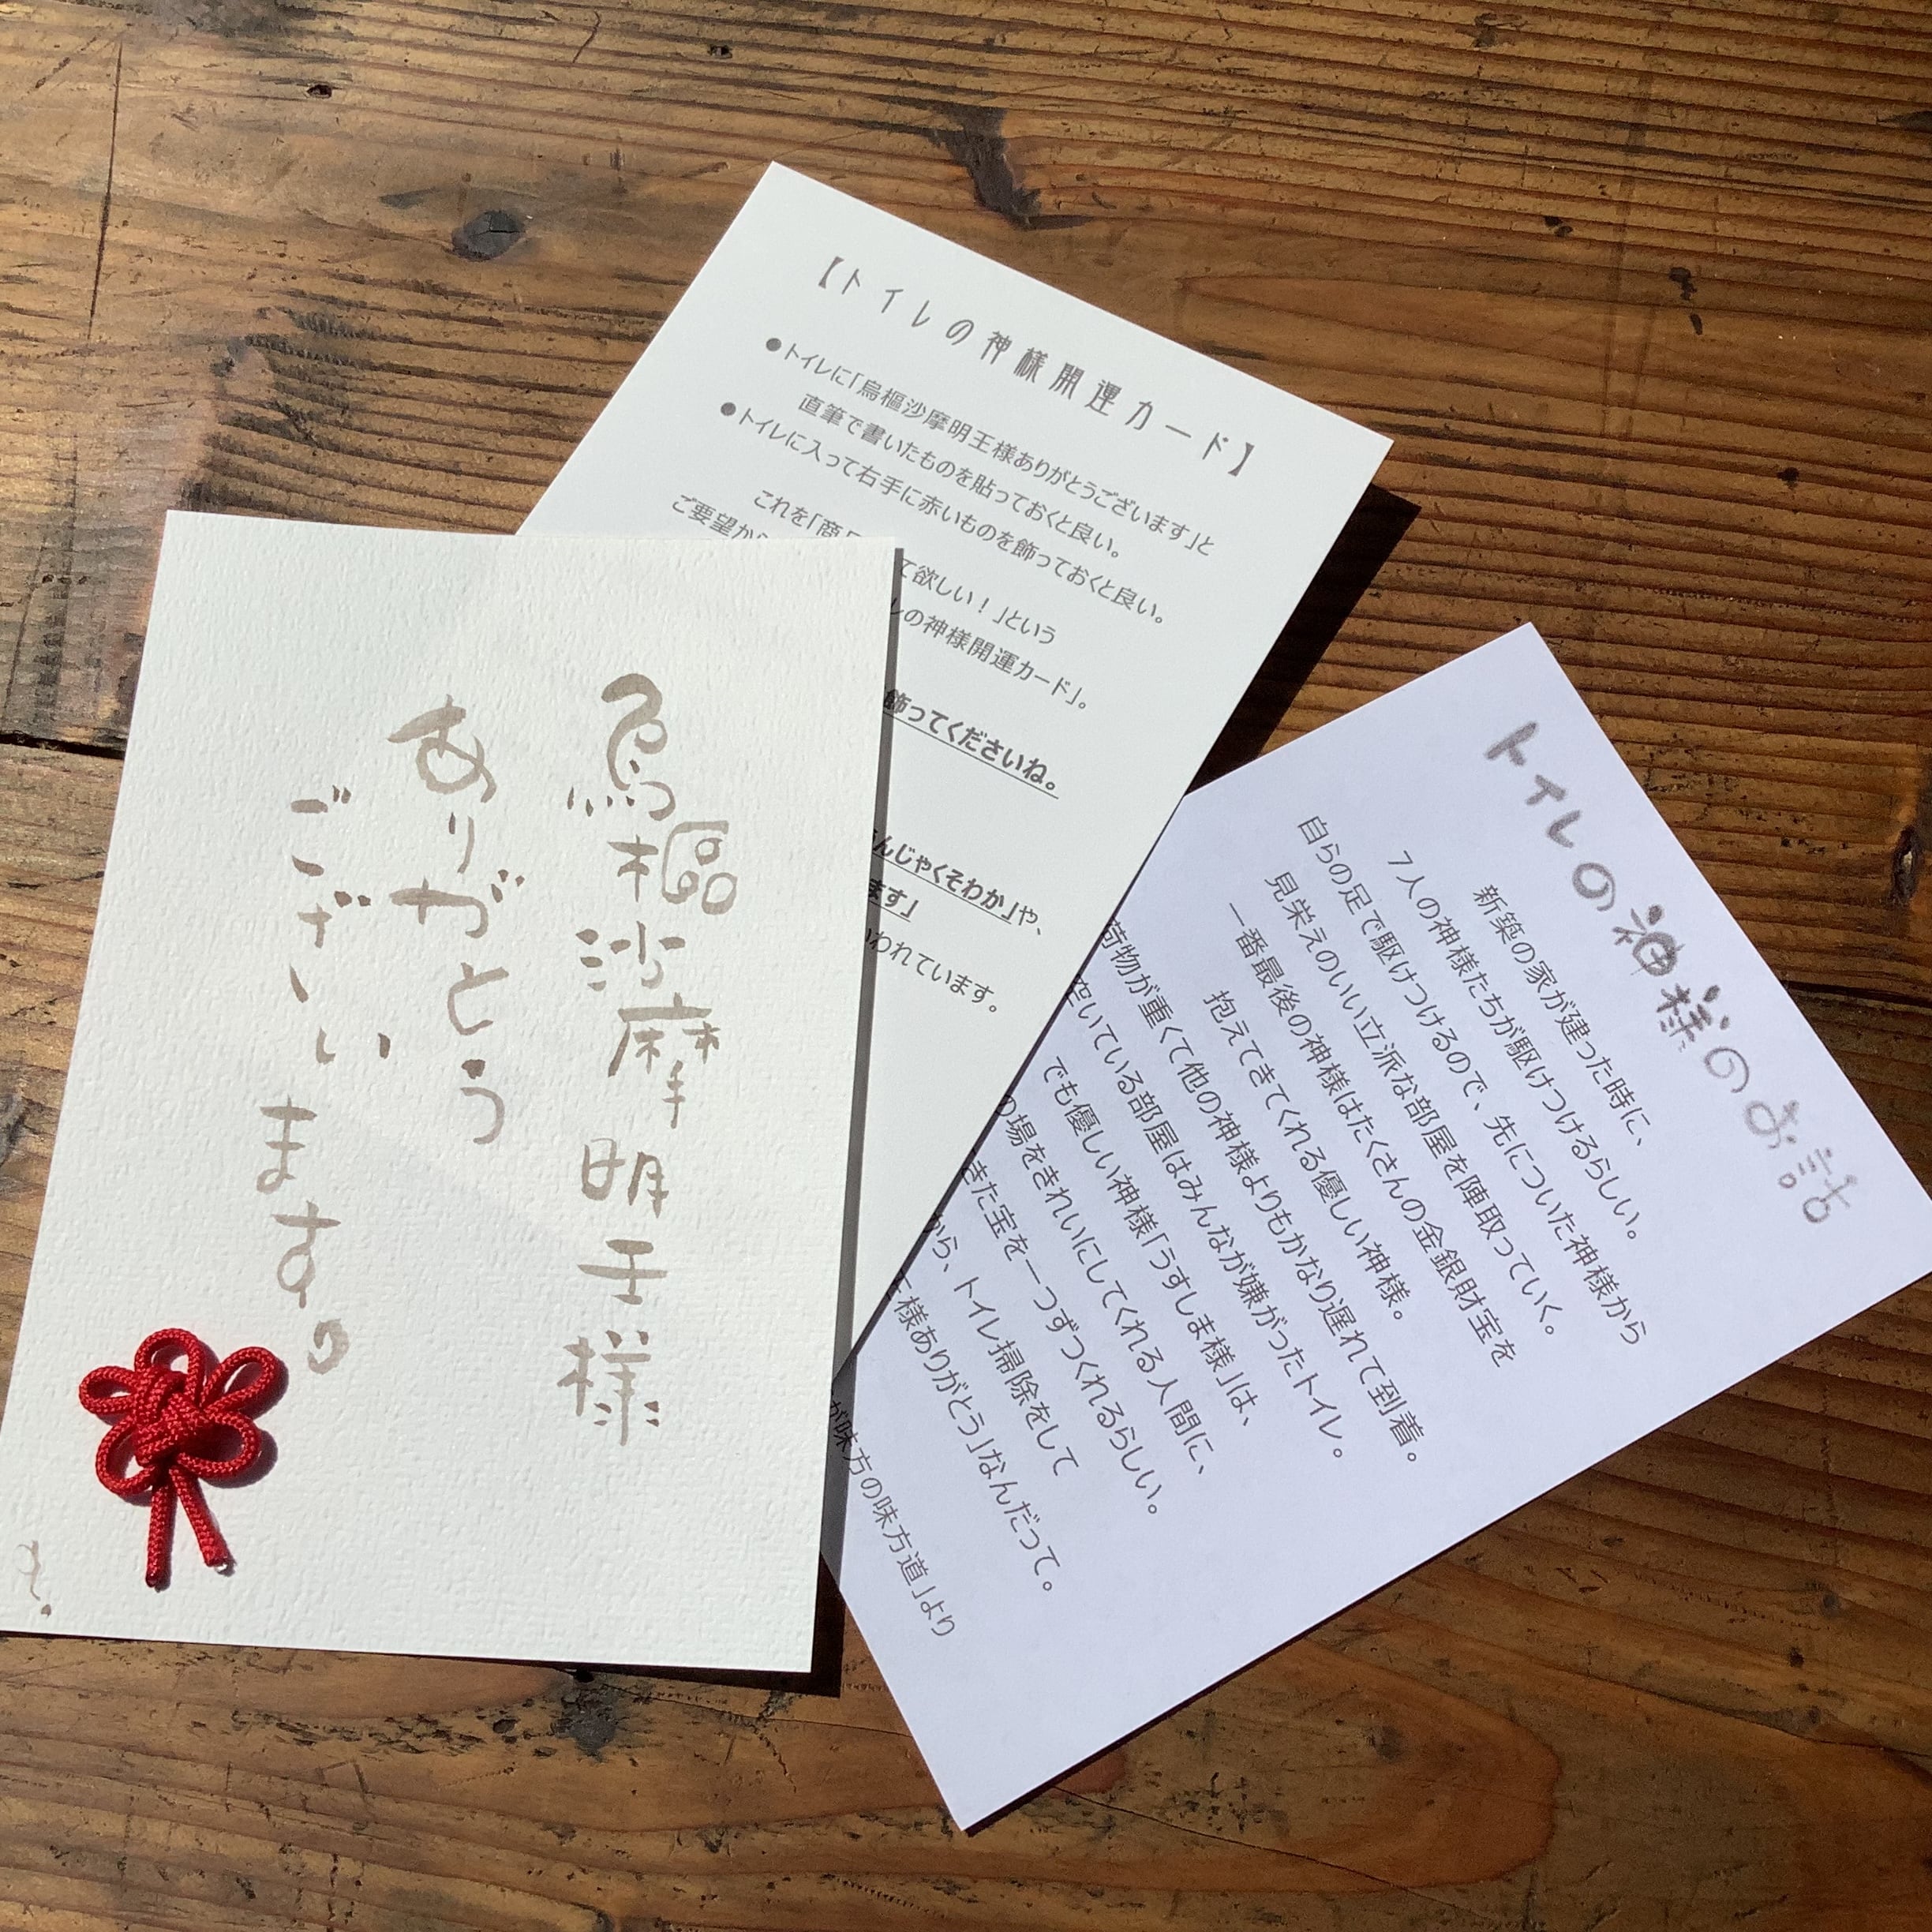 烏樞沙摩明王様
ありがとう
ございます。
【トイレの神様開運カード】
●トイレに「烏樞沙摩明王様ありがとうございます」と
直筆で書いたものを貼っておくと良い。
●トイレに入って右手に赤いものを飾っておくと良い。
これを「商品 て欲しい！」という
ご要望から レの神様開運カード」。
飾ってくださいね。
んじゃくそわか」や、
ます」
われています。
トイレの神様のお話
新築の家が建った時に、
7人の神様たちが駆けつけるらしい。
自らの足で駆けつけるので、先についた神様から
見栄えのいい立派な部屋を陣取っていく。
一番最後の神様はたくさんの金銀財宝を
抱えてきてくれる優しい神様。
荷物が重くて他の神様よりもかなり遅れて到着。
空いている部屋はみんなが嫌がったトイレ。
でも優しい神様「うすしま様」は、
の場をきれいにしてくれる人間に、
きた宝を一つずつくれるらしい。
から、トイレ掃除をして
王様ありがとう」なんだって。
が味方の味方道」より